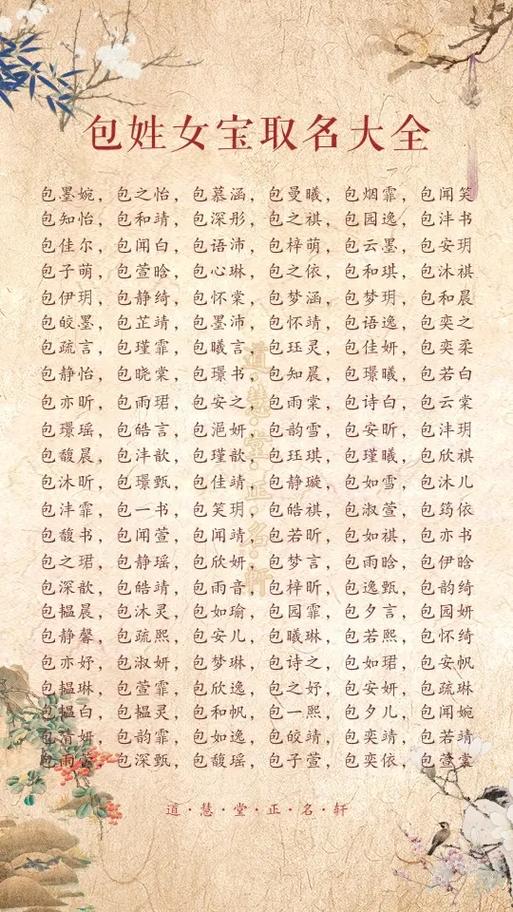 包姓女宝取名大全
包墨婉，包之怡，包慕涵，包曼曦，包烟霏，包闻笑
包知怡，包和靖，包深彤，包之祺，包园逸，包沣书
包佳尔，包闻白，包语沛，包梓萌，包云墨，包安玥
包子萌，包萱晗，包心琳，包之依，包和琪，包沐祺
包伊玥，包静绮，包怀棠，包梦涵，包梦玥，包和晨
包皎墨，包芷靖，包墨沛，包怀靖，包语逸，包奕之
包疏言，包瑾霏，包曦言，包珏灵，包佳妍，包奕柔
包静怡，包晓棠，包璟书，包知晨，包璟曦，包若白
包亦昕，包雨珺，包安之，包雨棠，包诗白，包云棠
包璟瑶，包皓言，包浥妍，包韵雪，包安昕，包沣玥
包馥晨，包沣歆，包瑾歆，包珏琪，包瑾曦，包欣祺
包沐昕，包璟甄，包佳靖，包静璇，包如雪，包沐儿
包沣霏，包一书，包笑玥，包皓祺，包淑萱，包筠依
包馥书，包闻萱，包闻靖，包若昕，包如祺，包亦书
包之珺，包静瑶，包欣妍，包梦言，包雨晗，包伊晗
包深歆，包皓靖，包雨音，包梓昕，包逸甄，包韵绮
包韫晨，包沐灵，包如瑜，包园霏，包夕言，包园妍
包静馨，包疏熙，包安儿，包曦琳，包若熙，包怀绮
包亦妤，包淑妍，包梦琳，包诗之，包如珺，包安帆
包韫琳，包萱霏，包欣逸，包之妤，包安妍，包疏琳
包韫白，包韫灵，包和帆，包一熙，包夕儿，包闻婉
包清妍，包韵霏，包如逸，包皎靖，包奕靖，包若靖
包雨，包深甄，包馥瑶，包子萱，包奕依，包萱棠
道·慧·堂·正·名·轩
道·慧·堂·正·名·轩